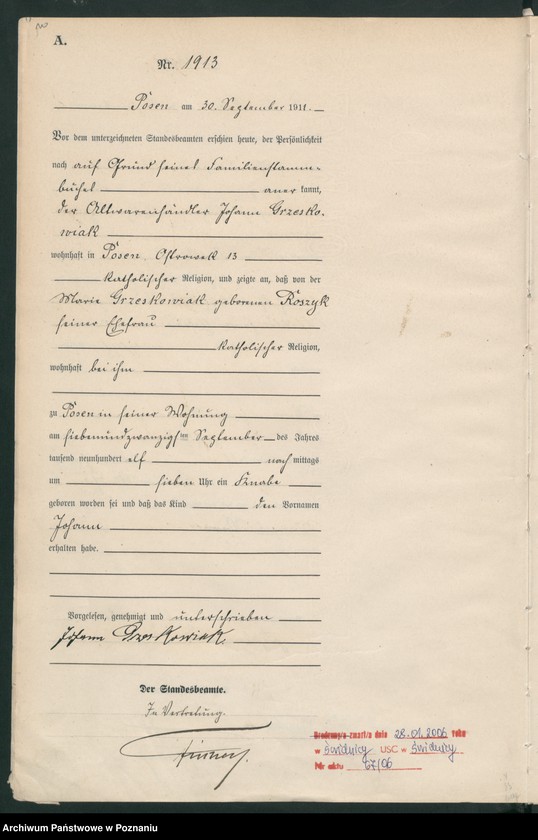 A.
Nr. 1913
Posen am 30. September 1911.
Vor dem unterzeichneten Standesbeamten erschien heute, der Persönlichkeit
nach auf Grund seines Familienstamm-
buches anerkannt,
der Altwarenhändler Johann Grzesko-
wiak
wohnhaft in Posen Ostrowek 13
katholischer Religion, und zeigte an, daß von der
Marie Grzeskowiak geborenen Roszyk
seiner Ehefrau
katholischer Religion,
wohnhaft bei ihm
zu Posen in seiner Wohnung
am siebenundzwanzigsten September des Jahres
tausend neunhundert elf nachmittags
um sieben Uhr ein Knabe
geboren worden sei und daß das Kind den Vornamen
Johann
erhalten habe.
Vorgelesen, genehmigt und unterschrieben
Johann Grzeskowiak
Der Standesbeamte.
In Vertretung.
zmarł/a dnia 28.01.2006 roku
w Świdnicy USC w Świdnicy
Nr aktu 67/06
Archiwum Państwowe w Poznaniu